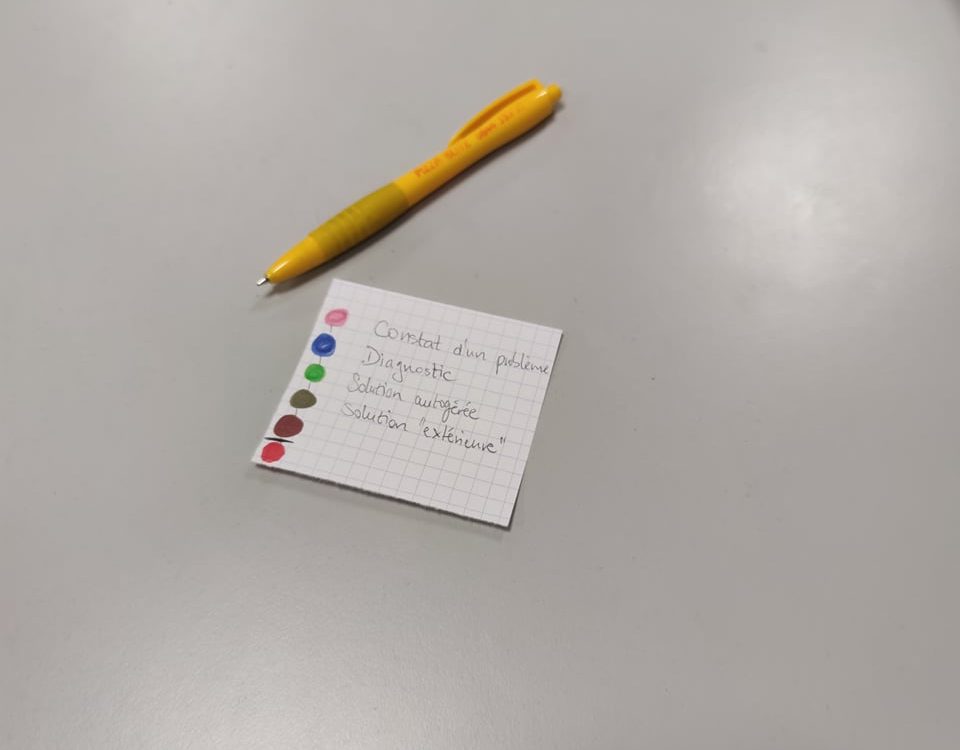 PIZZA
Constat d'un problème
Diagnostic
Solution autogérée
Solution "extérieure"